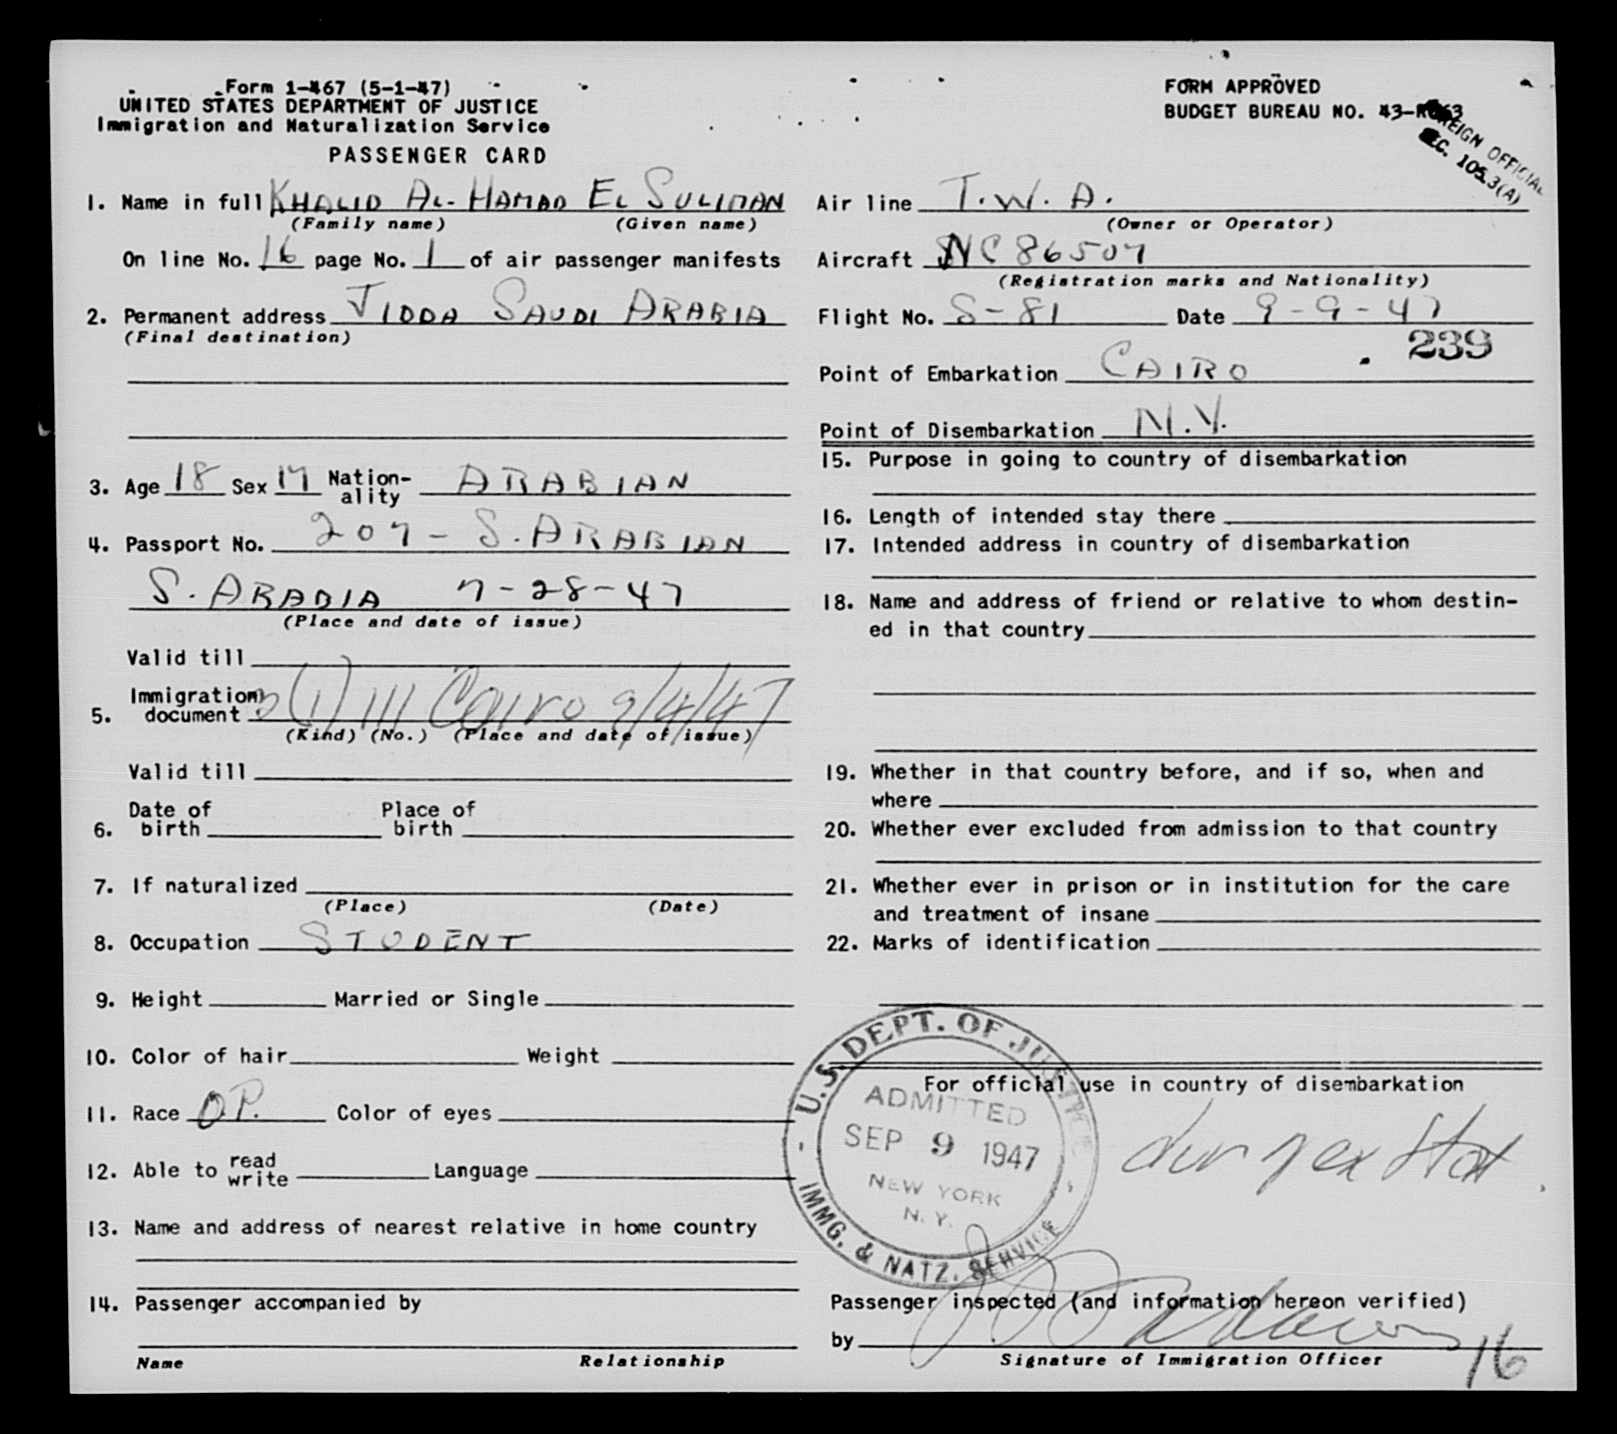 Form 1-467 (5-1-47)
UNITED STATES DEPARTMENT OF JUSTICE
Immigration and Naturalization Service
PASSENGER CARD
FORM APPROVED
BUDGET BUREAU NO. 43-R063
FOREIGN OFFICIAL
SEC. 105.3(A)
1. Name in full KHALID AL-HAMAD EL SULIMAN
(Family name) (Given name)
On line No. 16 page No. 1 of air passenger manifests
2. Permanent address JIDDA SAUDI ARABIA
(Final destination)
3. Age 18 Sex M Nation-
ality ARABIAN
4. Passport No. 207 - S. ARABIAN
S. ARABIA 7-28-47
(Place and date of issue)
Valid till
5. Immigration
document 3 (1) 111 Cairo 9/4/47
(Kind) (No.) (Place and date of issue)
Valid till
6. Date of
birth
Place of
birth
7. If naturalized
(Place) (Date)
8. Occupation STUDENT
9. Height Married or Single
10. Color of hair Weight
11. Race O.P. Color of eyes
12. Able to read
write Language
13. Name and address of nearest relative in home country
14. Passenger accompanied by
Name Relationship
Air line T.W.A.
(Owner or Operator)
Aircraft NC 86507
(Registration marks and Nationality)
Flight No. S-81 Date 9-9-47
239
Point of Embarkation CAIRO
Point of Disembarkation N.Y.
15. Purpose in going to country of disembarkation
16. Length of intended stay there
17. Intended address in country of disembarkation
18. Name and address of friend or relative to whom destin-
ed in that country
19. Whether in that country before, and if so, when and
where
20. Whether ever excluded from admission to that country
21. Whether ever in prison or in institution for the care
and treatment of insane
22. Marks of identification
For official use in country of disembarkation
U.S. DEPT. OF JUSTICE
ADMITTED
SEP 9 1947
NEW YORK
N. Y.
IMMG. & NATZ. SERVICE
Passenger inspected (and information hereon verified)
by
Signature of Immigration Officer
16